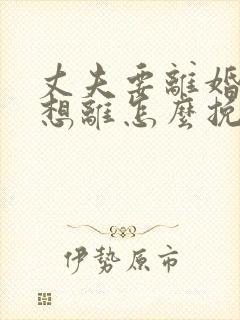 丈夫要離婚
想離怎麼挽
伊勢原市